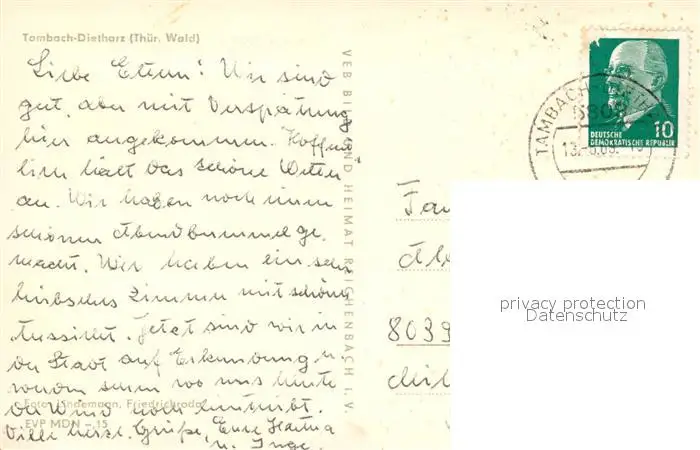 Tambach-Dietharz (Thür. Wald)
Liebe Eltern! Wir sind
gut, aber mit Verspätung
hier angekommen. Hoffent
lich hält das schöne Wetter
an. Wir haben noch einen
schönen Abendbummel ge
macht. Wir haben ein sehr
hübsches Zimmer mit schöner
Aussicht. Jetzt sind wir in
der Stadt auf Erkundung u.
wollen sehen wo uns heute
der Wind noch hintreibt.
Viele herzl. Grüße, Eure
u. Inge
Foto: Lindemann, Friedrichroda
EVP MDN -,15
VEB BILD UND HEIMAT REICHENBACH I. V.
TAMBACH-
5809
13.
DEUTSCHE
DEMOKRATISCHE REPUBLIK
10
8039
privacy protection
Datenschutz